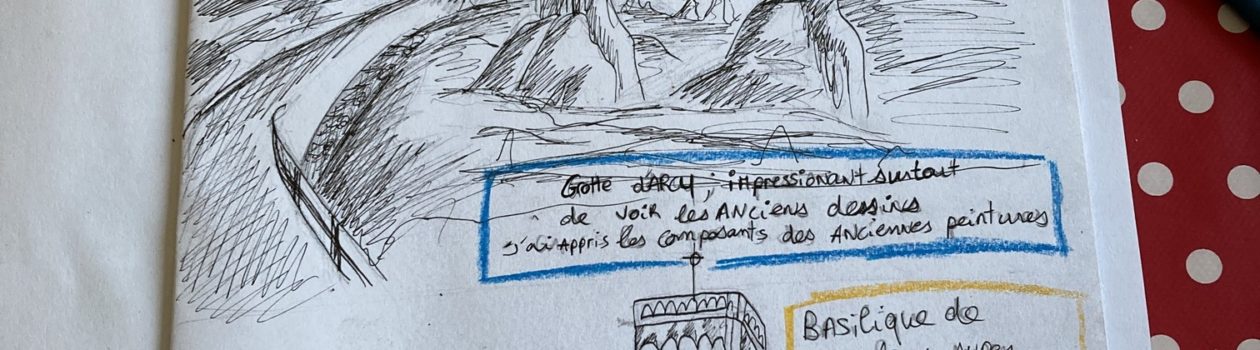 Grotte d'ARCY ; impressionant surtout
de voir les ANciens dessins
j'ai Appris les composants des ANciennes peintures
BASilique de